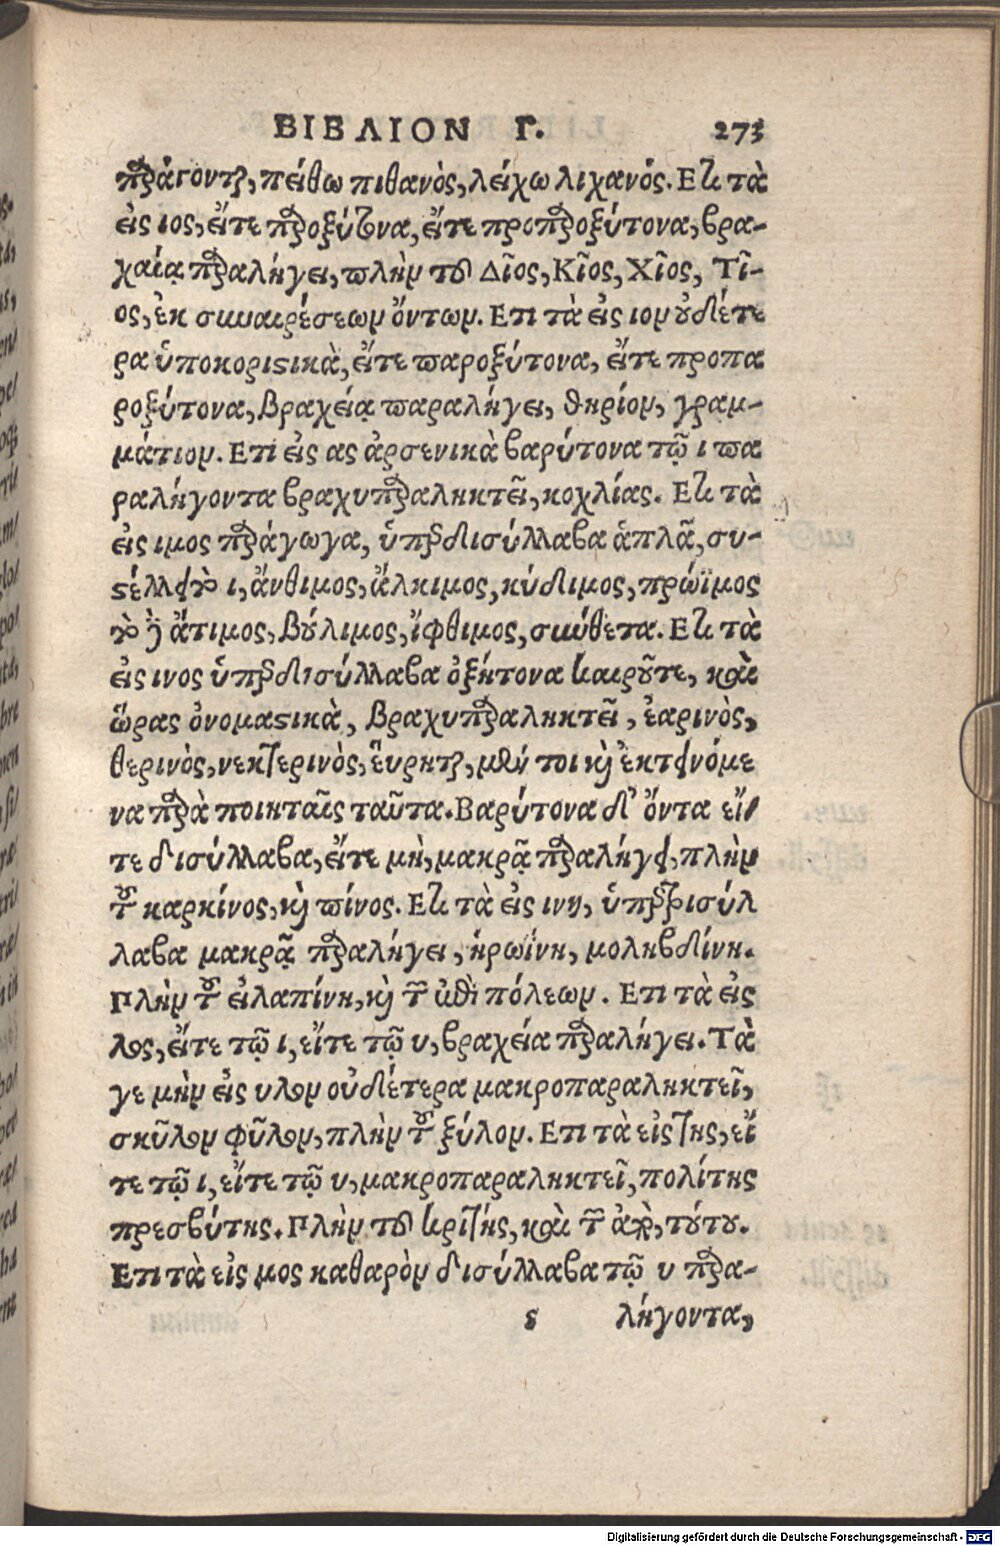 ΒΙΒΛΙΟΝ Γ. 273
παράγονται, πείθω πιθανὸς, λείχω λιχανός. Ετι τὰ
εἰς ιος, εἴτε παροξύτονα, εἴτε προπαροξύτονα, βρα-
χείᾳ παραλήγει, πλὴν τοῦ Δῖος, Κῖος, Χῖος, Τῖ-
ος, ἐκ συναιρέσεων ὄντων. Ετι τὰ εἰς ιον οὐδέτε
ρα ὑποκοριστικὰ, εἴτε παροξύτονα, εἴτε προπα
ροξύτονα, βραχείᾳ παραλήγει, θηρίον, γραμ-
μάτιον. Ετι εἰς ας ἀρσενικὰ βαρύτονα τῷ ι πα
ραλήγοντα βραχυπαραληκτεῖ, κοχλίας. Ετι τὰ
εἰς ιμος παράγωγα, ὑπὲρ δισύλλαβα ἁπλᾶ, συ-
στέλλει τὸ ι, ἄνθιμος, ἄλκιμος, κύδιμος, πρώϊμος
τὸ δὲ ἄτιμος, βούλιμος, ἴφθιμος, σύνθετα. Ετι τὰ
εἰς ινος ὑπὲρ δισύλλαβα ὀξύτονα καιροῦτε, καὶ
ὥρας ὀνομαστικὰ, βραχυπαραληκτεῖ, ἐαρινὸς,
θερινὸς, νεκτερινὸς, εὕρηται, μέν τοι καὶ ἐκτεινόμε
να παρὰ ποιηταῖς ταῦτα. Βαρύτονα δ' ὄντα εἴ
τε δισύλλαβα, εἴτε μὴ, μακρᾷ παραλήγει, πλὴν
τοῦ καρκίνος, καὶ πίνος. Ετι τὰ εἰς ινη, ὑπὲρ τρισύλ
λαβα μακρᾷ παραλήγει, ἡρωΐνη, μοληβδίνη.
Πλὴν τοῦ εἰλαπίνη, καὶ τῶν πόλεων. Ετι τὰ εἰς
λος, εἴτε τῷ ι, εἴτε τῷ υ, βραχεία παραλήγει. Τὰ
γε μὴν εἰς υλον οὐδέτερα μακροπαραληκτεῖ,
σκῦλον φῦλον, πλὴν τοῦ ξύλον. Ετι τὰ εἰς της, εἴ
τε τῷ ι, εἴτε τῷ υ, μακροπαραληκτεῖ, πολίτης
πρεσβύτης. Πλὴν τοῦ κριτής, καὶ τῶν τούτου.
Ετι τὰ εἰς μος καθαρὸν δισύλλαβα τῷ υ παρα-
s λήγοντα,
Digitalisierung gefördert durch die Deutsche Forschungsgemeinschaft - DFG